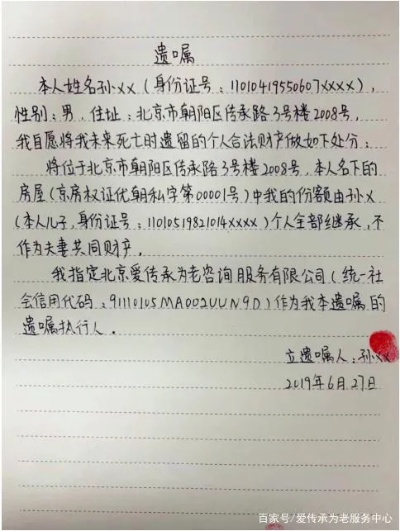 遗嘱
本人姓名孙xx(身份证号:11010419550607xxxx),
性别:男,住址:北京市朝阳区传承路3号楼2008号,
我自愿将我未来死亡时遗留的个人合法财产做如下处分:
将位于北京市朝阳区传承路3号楼2008号,本人名下的
房屋(京房权证优朝私字第00001号)中我的份额由孙x
(本人儿子,身份证号:11010519821014xxxx)个人全部继承,不
作为夫妻共同财产。
我指定北京爱传承为老咨询服务有限公司(统一社
会信用代码:91110105MA002UUN9D)作为我本遗嘱的
遗嘱执行人。
立遗嘱人:孙xx
2019年6月27日
百家号/爱传承为老服务中心